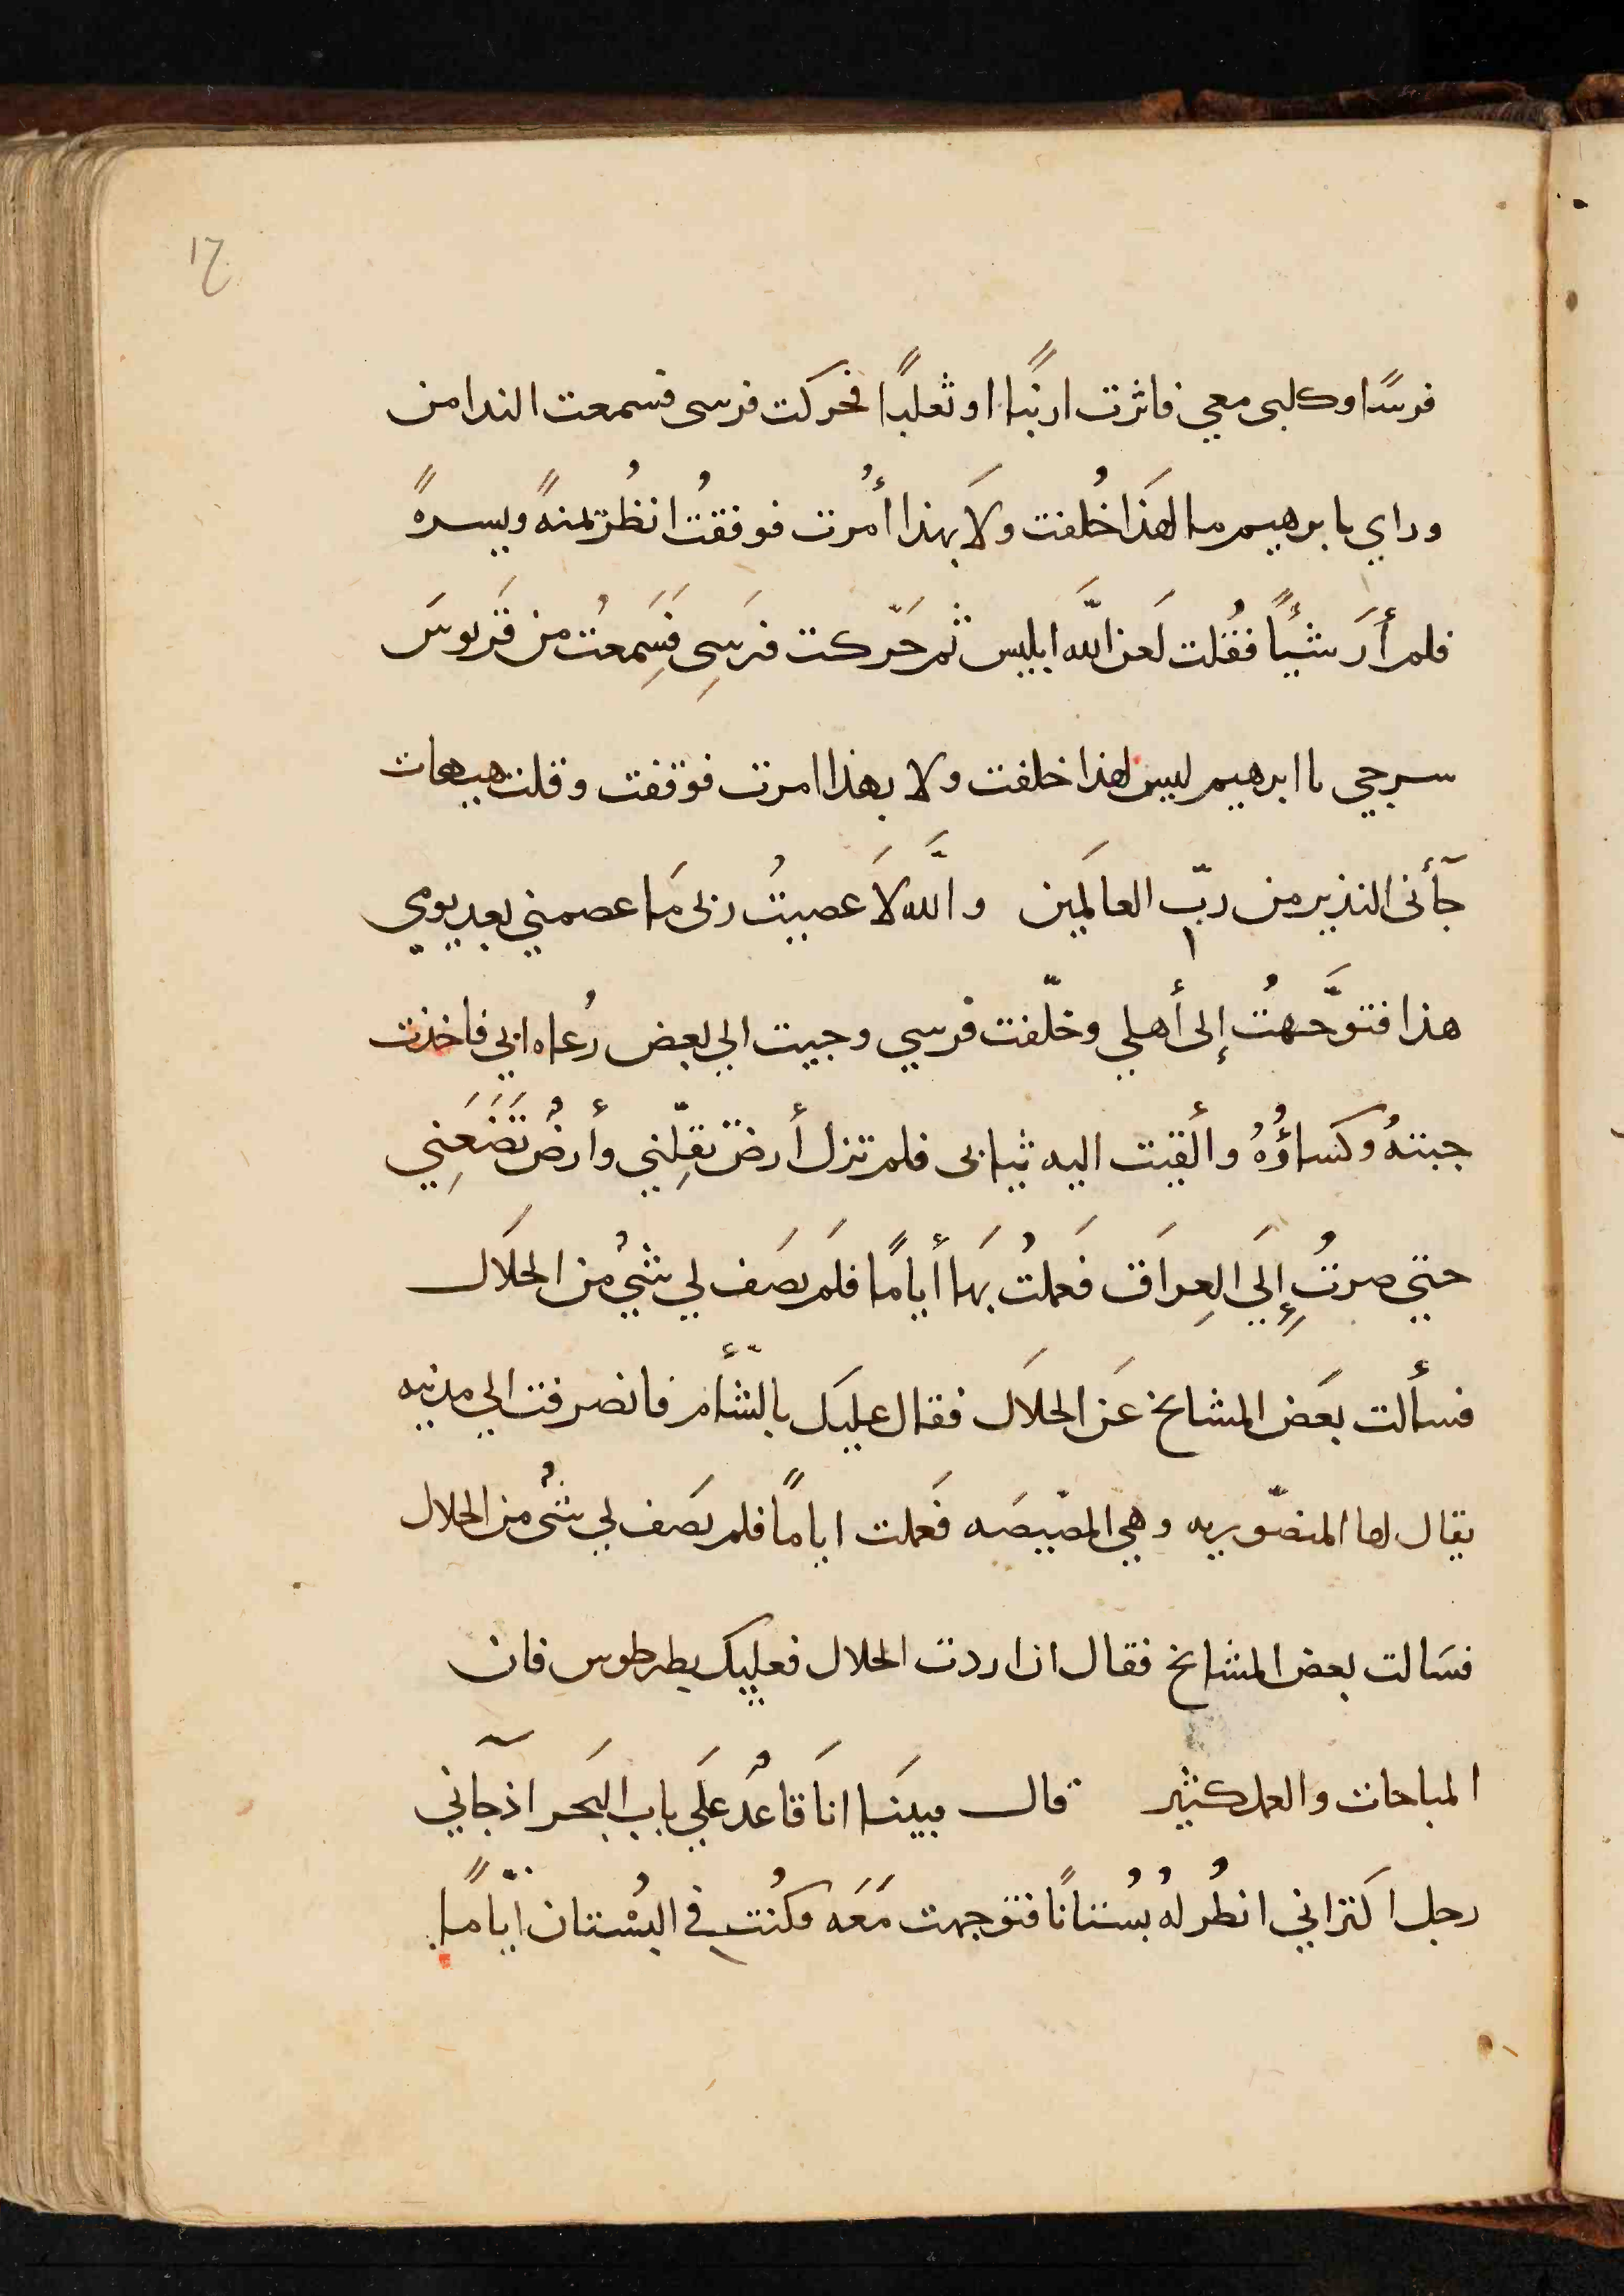 ١٦
فرسًا وكلبى معي فاثرت ارنبًا او ثعلبًا فحركت فرسى فسمعت الندا من
وراي يابرهيم ما لهَذا خُلقت ولَا بهذا أُمرت فوقفتُ انظُر يمنةً ويسرةً
فلم أرَ شئًا فقُلت لَعن اللَّه ابليس ثم حَرّكت فرَسِى فَسَمِعتُ من قَربوسَ
سرجي يا ابرهيم ليس لهذا خلقت ولا بهذا امرت فوقفت وقلت هيهات
جآأنى النذير من ربّ العالَمين واللَّه لَا عصيتُ ربى مَا عصمني بعد يومي
هذا فتوَّجهتُ إلى أهلي وخلّفت فرسي وجيت الي بعض رُعاه ابي فاخذت
جبتهُ وكساؤُهُ وألقيت اليه ثيابى فلم تزل أرض تقلِّني وأرضٌ تَضَعَنِي
حتي صرتُ إلَي العِراَق فَعملتُ بهَا أيامًا فلَم يَصَف لي شيٌ من الحلَال
فسألت بعَض المشايخ عَن الحلَال فقال عليك بالشّأم فانصرفت الي مدينه
يقال لها المنصّوريه وهي المصّيصَه فَعملت ايامًا فلم يصَف لي شىٌ من الحلال
فسَالت بعض المشايخ فقال ان اردت الحلال فعليك بطرطوس فان
المباحات والعمل كثير قال فبينَما انَا قاعدٌ علَي باب البَحر اذ جآني
رجل اكتراني انظُر لهُ بُستانًا فتوجهت مَعَه وكُنت في البُستان ايّامًا